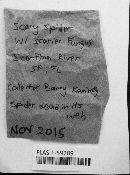 Scary Spider
w/ scarier Fungus
River
SP, FL
Collector Barry Kaminsky
Spider dead in its
web,
NOV 2015
FLAS F-59709